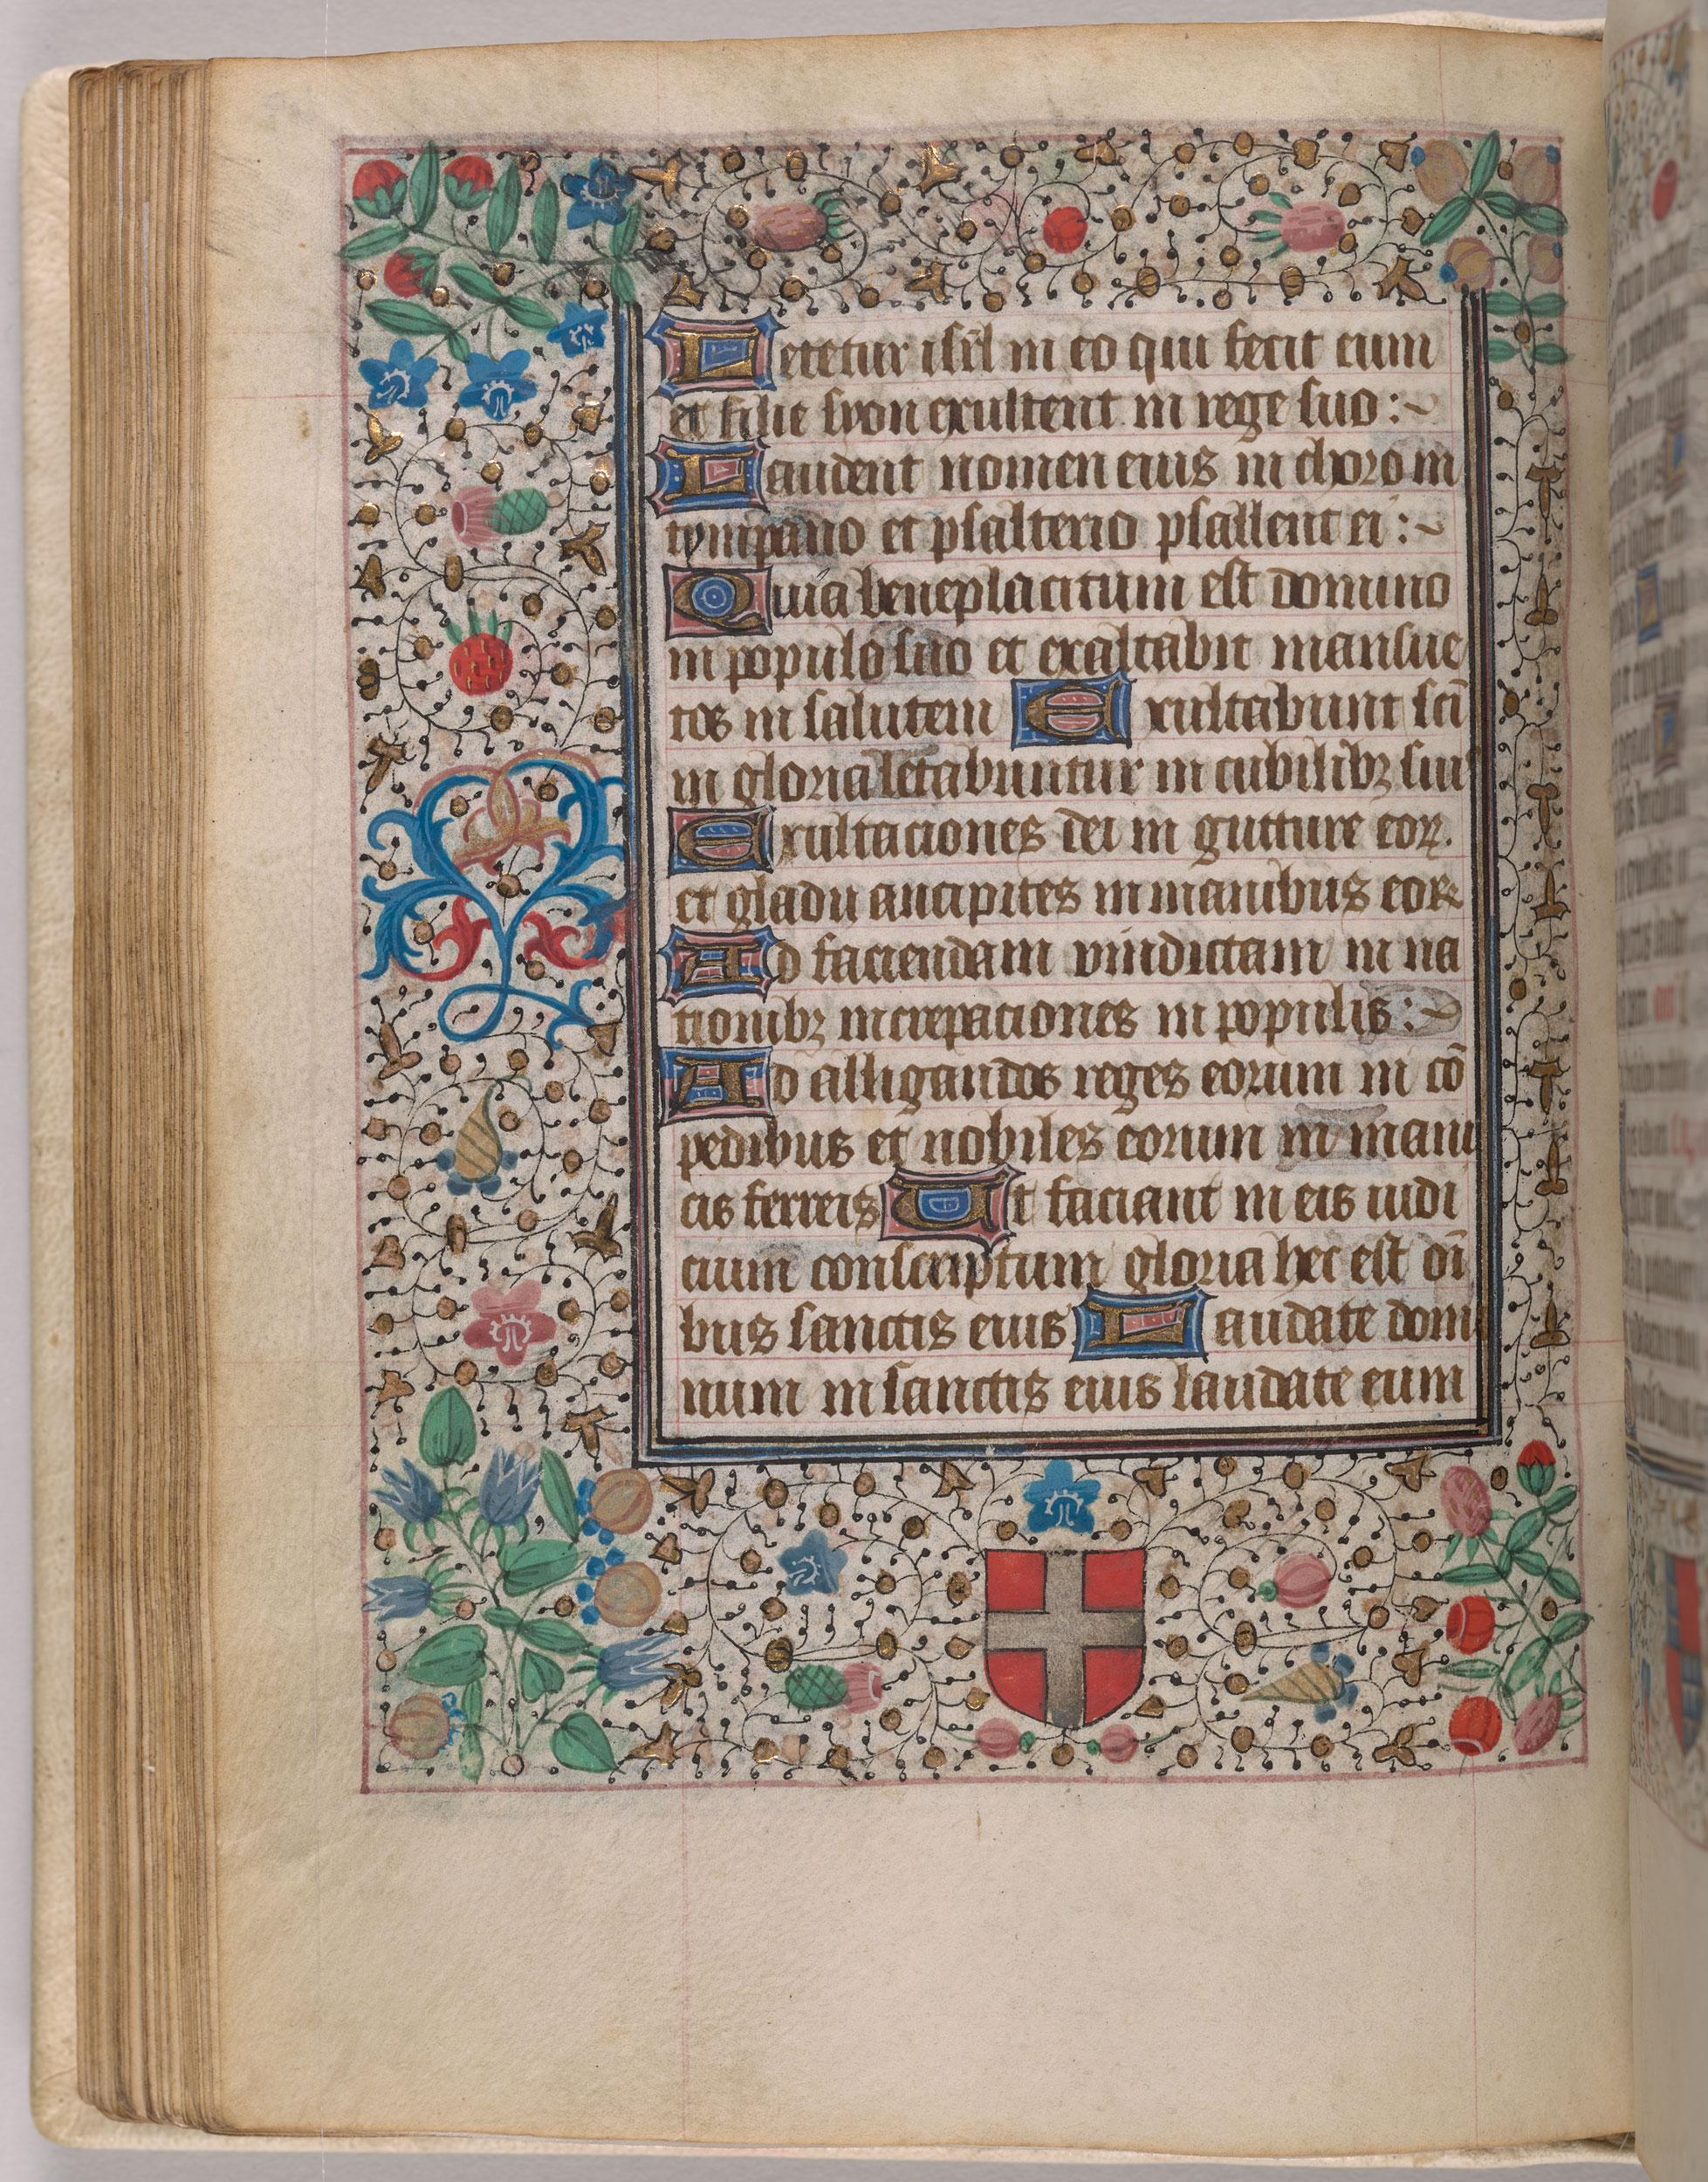 Letetur isrl̄ in eo qui fecit eum
et filie syon exultent in rege suo :~
Laudent nomen eius in choro in
tympano et psalterio psallent ei :~
Quia beneplacitum est domino
in populo suo et exaltabit mansue
tos in salutem Exultabunt sc̄i
in gloria letabuntur in cubilibꝫ suis
Exultaciones dei in gutture eoꝝ.
et gladii ancipites in manibus eoꝝ
Ad faciendam vindictam in na
tionibꝫ increpaciones in populis :~
Ad alligandos reges eorum in cō
pedibus et nobiles eorum in mani
cis ferreis Ut faciant in eis iudi
cium conscriptum gloria hec est oī
bus sanctis eius Laudate domi
num in sanctis eius laudate eum